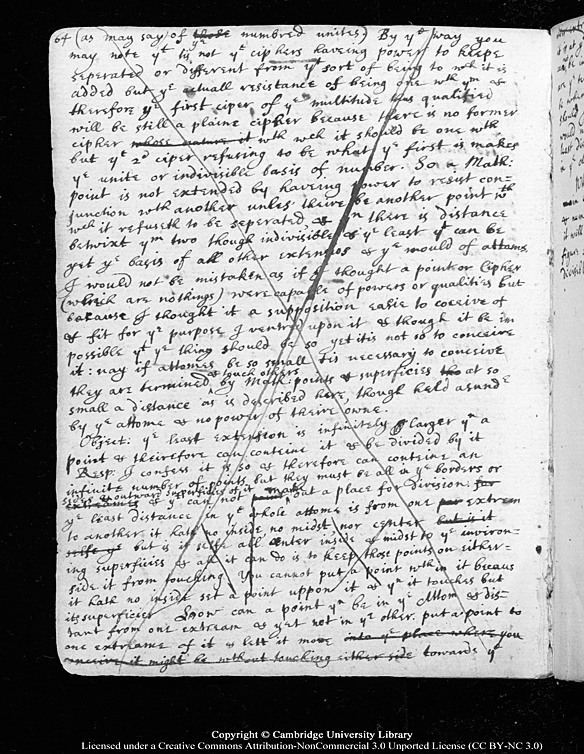 64 (as may say) of those ye numbred unites) By ye way you
may note yt tis not ye ciphers haveing power to keepe
seperated or different from yt sort of being to wch it is
added but ye actuall resistance of being one wth ym &
therefore ye first ciper of ye multitude was qualified
will be still a plaine cipher because there is no former
cipher whose nature it wth wch it should be one wth
but ye 2d ciper refusing to be what ye first is makes
ye unite or indivisible basis of number. So a Math:
point is not extended by haveing power to resist con-
junction wth another unles theire be another point wth
wch it refuseth to be seperated, & in there is distance
betwixt ym two though indivisible & ye least yt can be
yet ye basis of all other extensios & ye mould of attoms
I would not be mistaken as if I thought a point or Cipher
(which are nothings) were capable of powers or qualitys but
because I thought it a supposition easie to coceive of
& fit for ye purpose I ventred upon it & though it be im
possible yt ye thing should be so yet itis not so to conceive
it: nay if attomes be so small tis necessary to conceive
they are termined by Math: points & superficies tho at so
& such others
small a distance as is described here, though held asundr
by ye attome & no power of theire owne.
Object: ye least extension is infinitely larger yn a
point & therefore can conteine it & be divided by it
Resp: I confess it is so & therefore can conteine an
infinite number of points but they must be all in ye borders or
sides & outward superficies of it
extreames & yt can not point make out a place for division: for
ye least distance in ye whole attome is from one par extrem
to another it hath no inside no midst nor center but is it
selfe ye but is it selfe all center inside & midst to ye environ-
ing superficies & all it can do is to keep those points on either-
side it from touching You cannot put a point within it becaus
it hath no inside set a point uppon it & yn it touches but
its superficies How can a point yn be in ye Attom & dis-
tant from one extream & yet not in ye other. put a point to
one extreame of it & lett it move into ye place where you
conceive it might be without touching either side towards ye
Copyright © Cambridge University Library
Licensed under a Creative Commons Attribution-NonCommercial 3.0 Unported License (CC BY-NC 3.0)